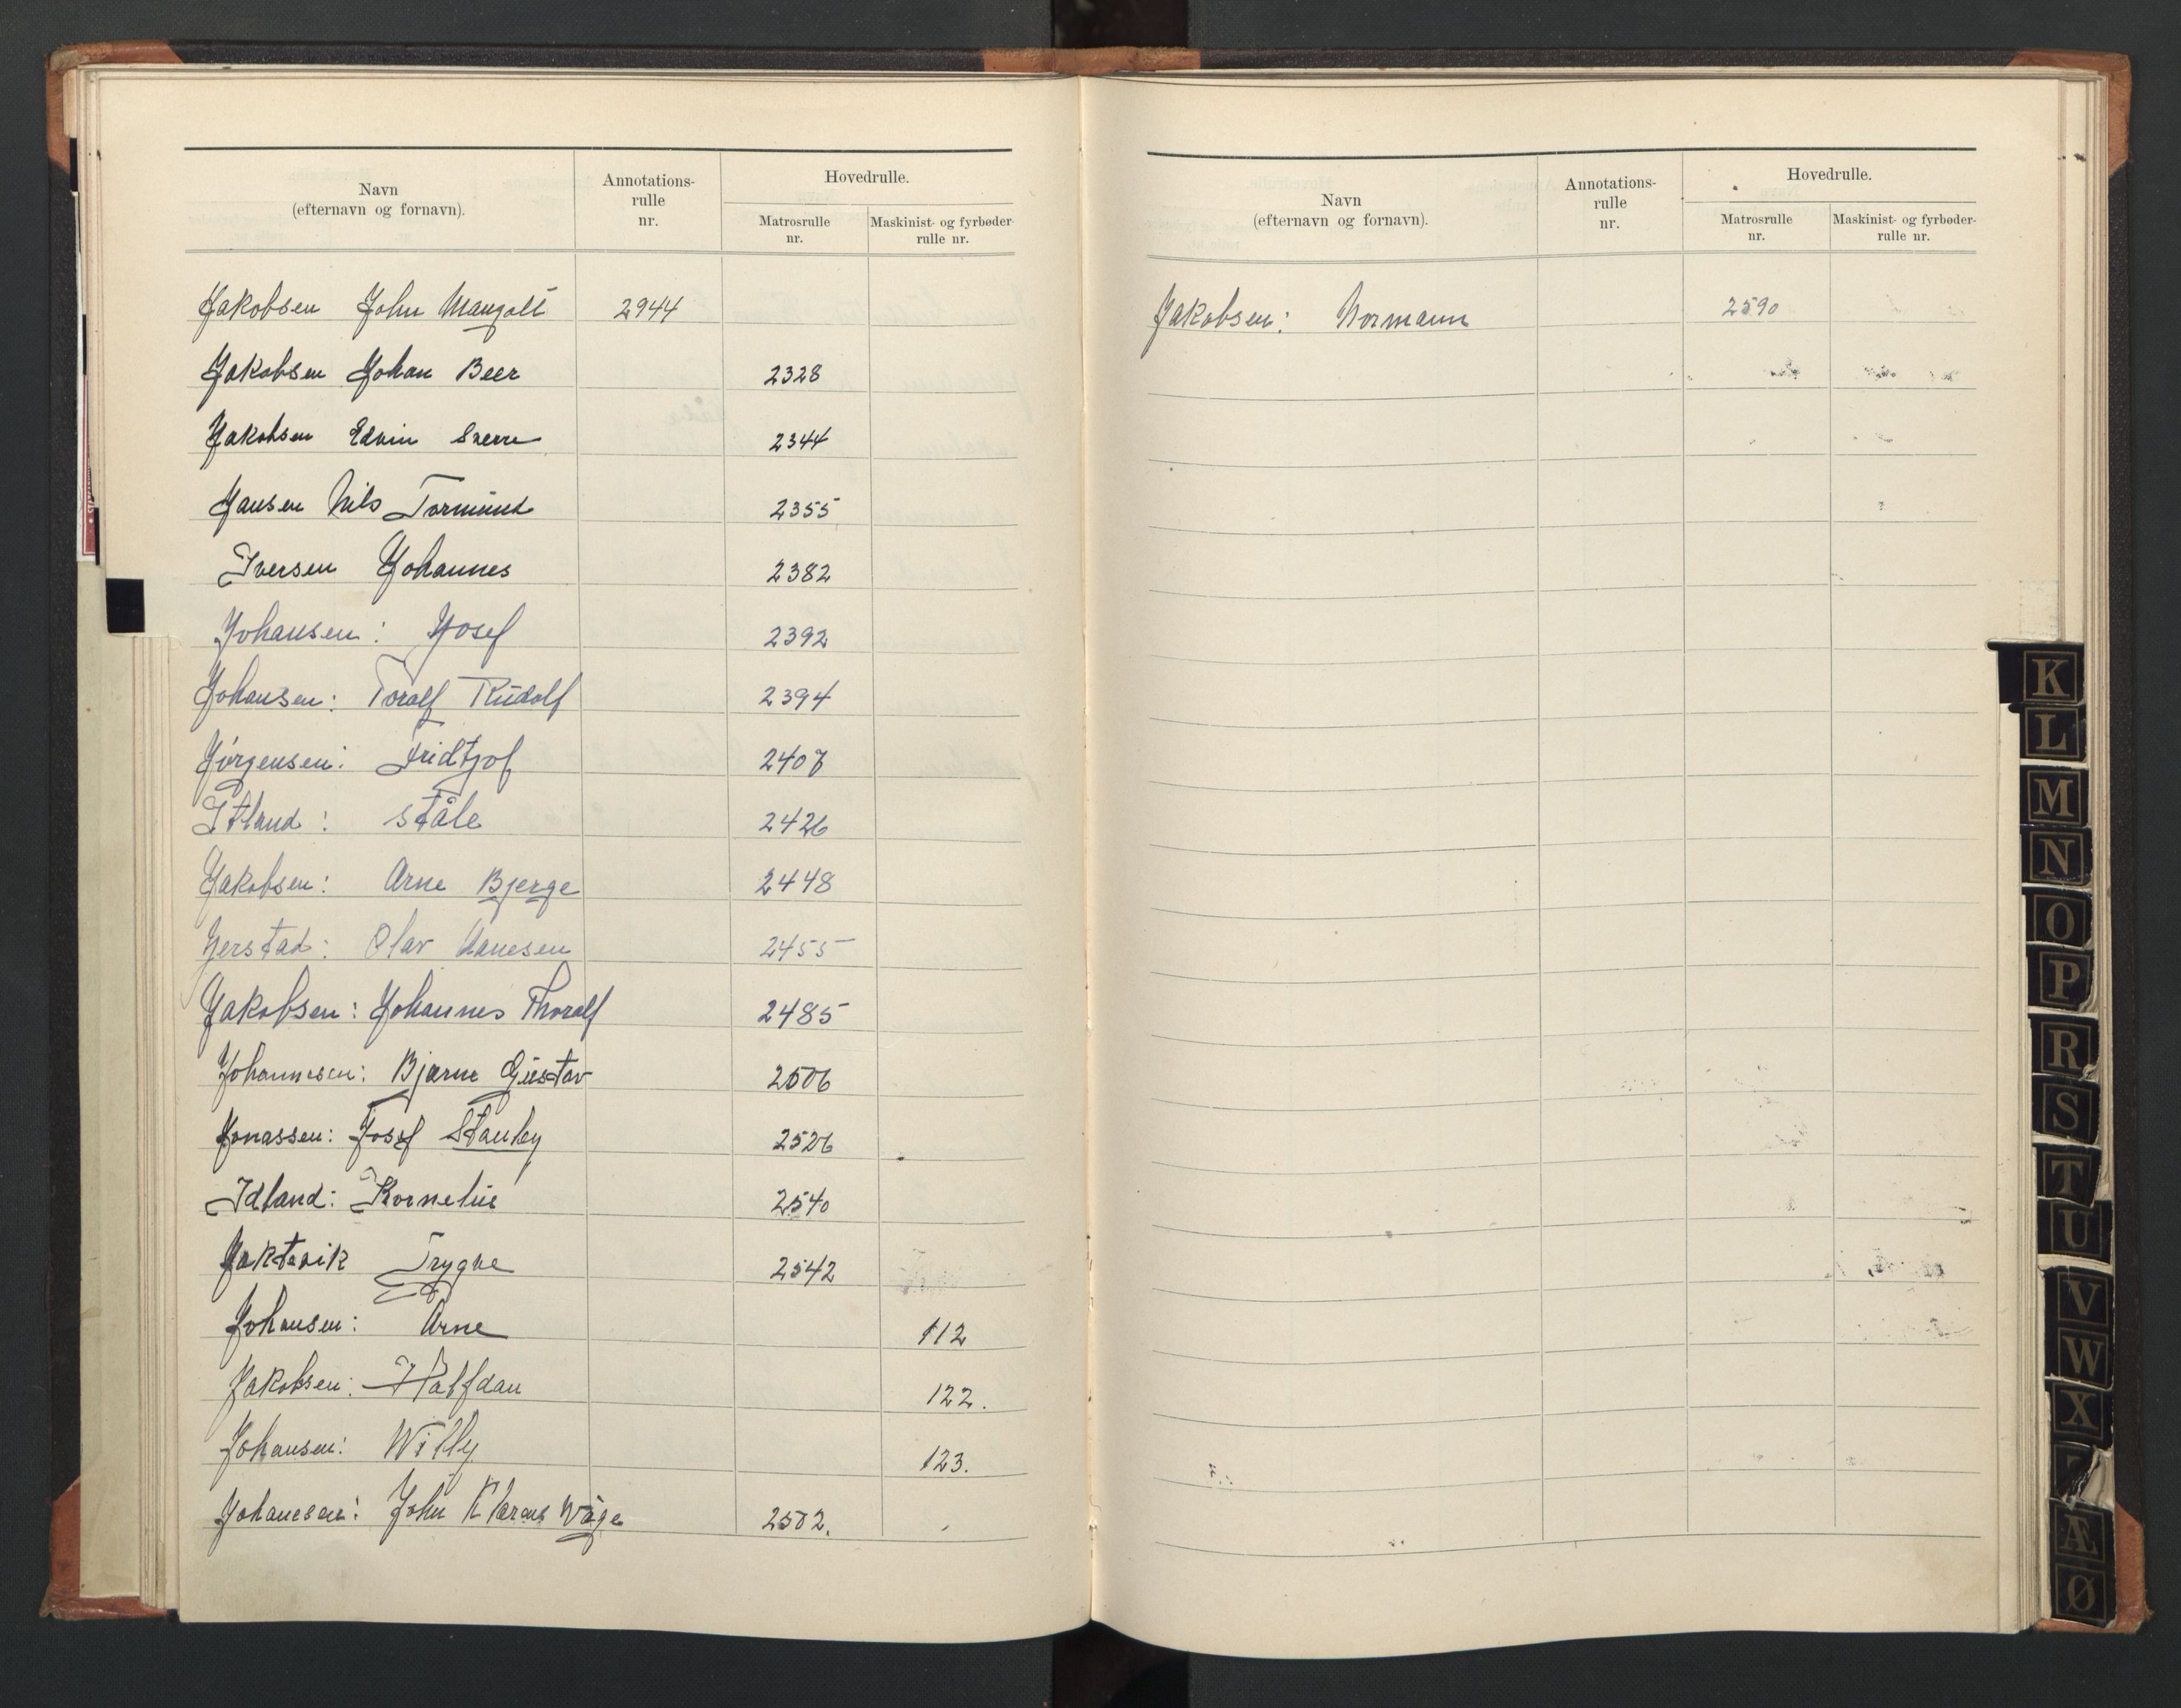 Navn
(efternavn og fornavn).
Annotations-
rulle
nr.
Hovedrulle.
Matrosrulle
nr.
Maskinist- og fyrbøder-
rulle nr.
Jakobsen John Mangolt 2944
Jakobsen Johan Beer 2328
Jakobsen Edvin Sverre 2344
Jansen Nils Tormund 2355
Iversen Johannes 2382
Johansen: Josef 2392
Johansen: Toralf Rudolf 2394
Jørgensen: Fridtjof 2407
Itland: Ståle 2426
Jakobsen: Arne Bjerge 2448
Jerstad: Olav Hansen 2455
Jakobsen: Johannes Thoralf 2485
Johannesen: Bjarne Gustav 2506
Jonassen: Josef Stanley 2526
Idland: Kornelius 2540
Jaktevik Trygve 2542
Johansen: Arne 112
Jakobsen: Halfdan 122.
Johansen: Willy 123.
Johanesen: John Våge 2502.
Navn
(efternavn og fornavn).
Annotations-
rulle
nr.
Hovedrulle.
Matrosrulle
nr.
Maskinist- og fyrbøder-
rulle nr.
Jakobsen: Normann 2590
K
L
M
N
O
P
R
S
T
U
V
W
X
Æ
Ø